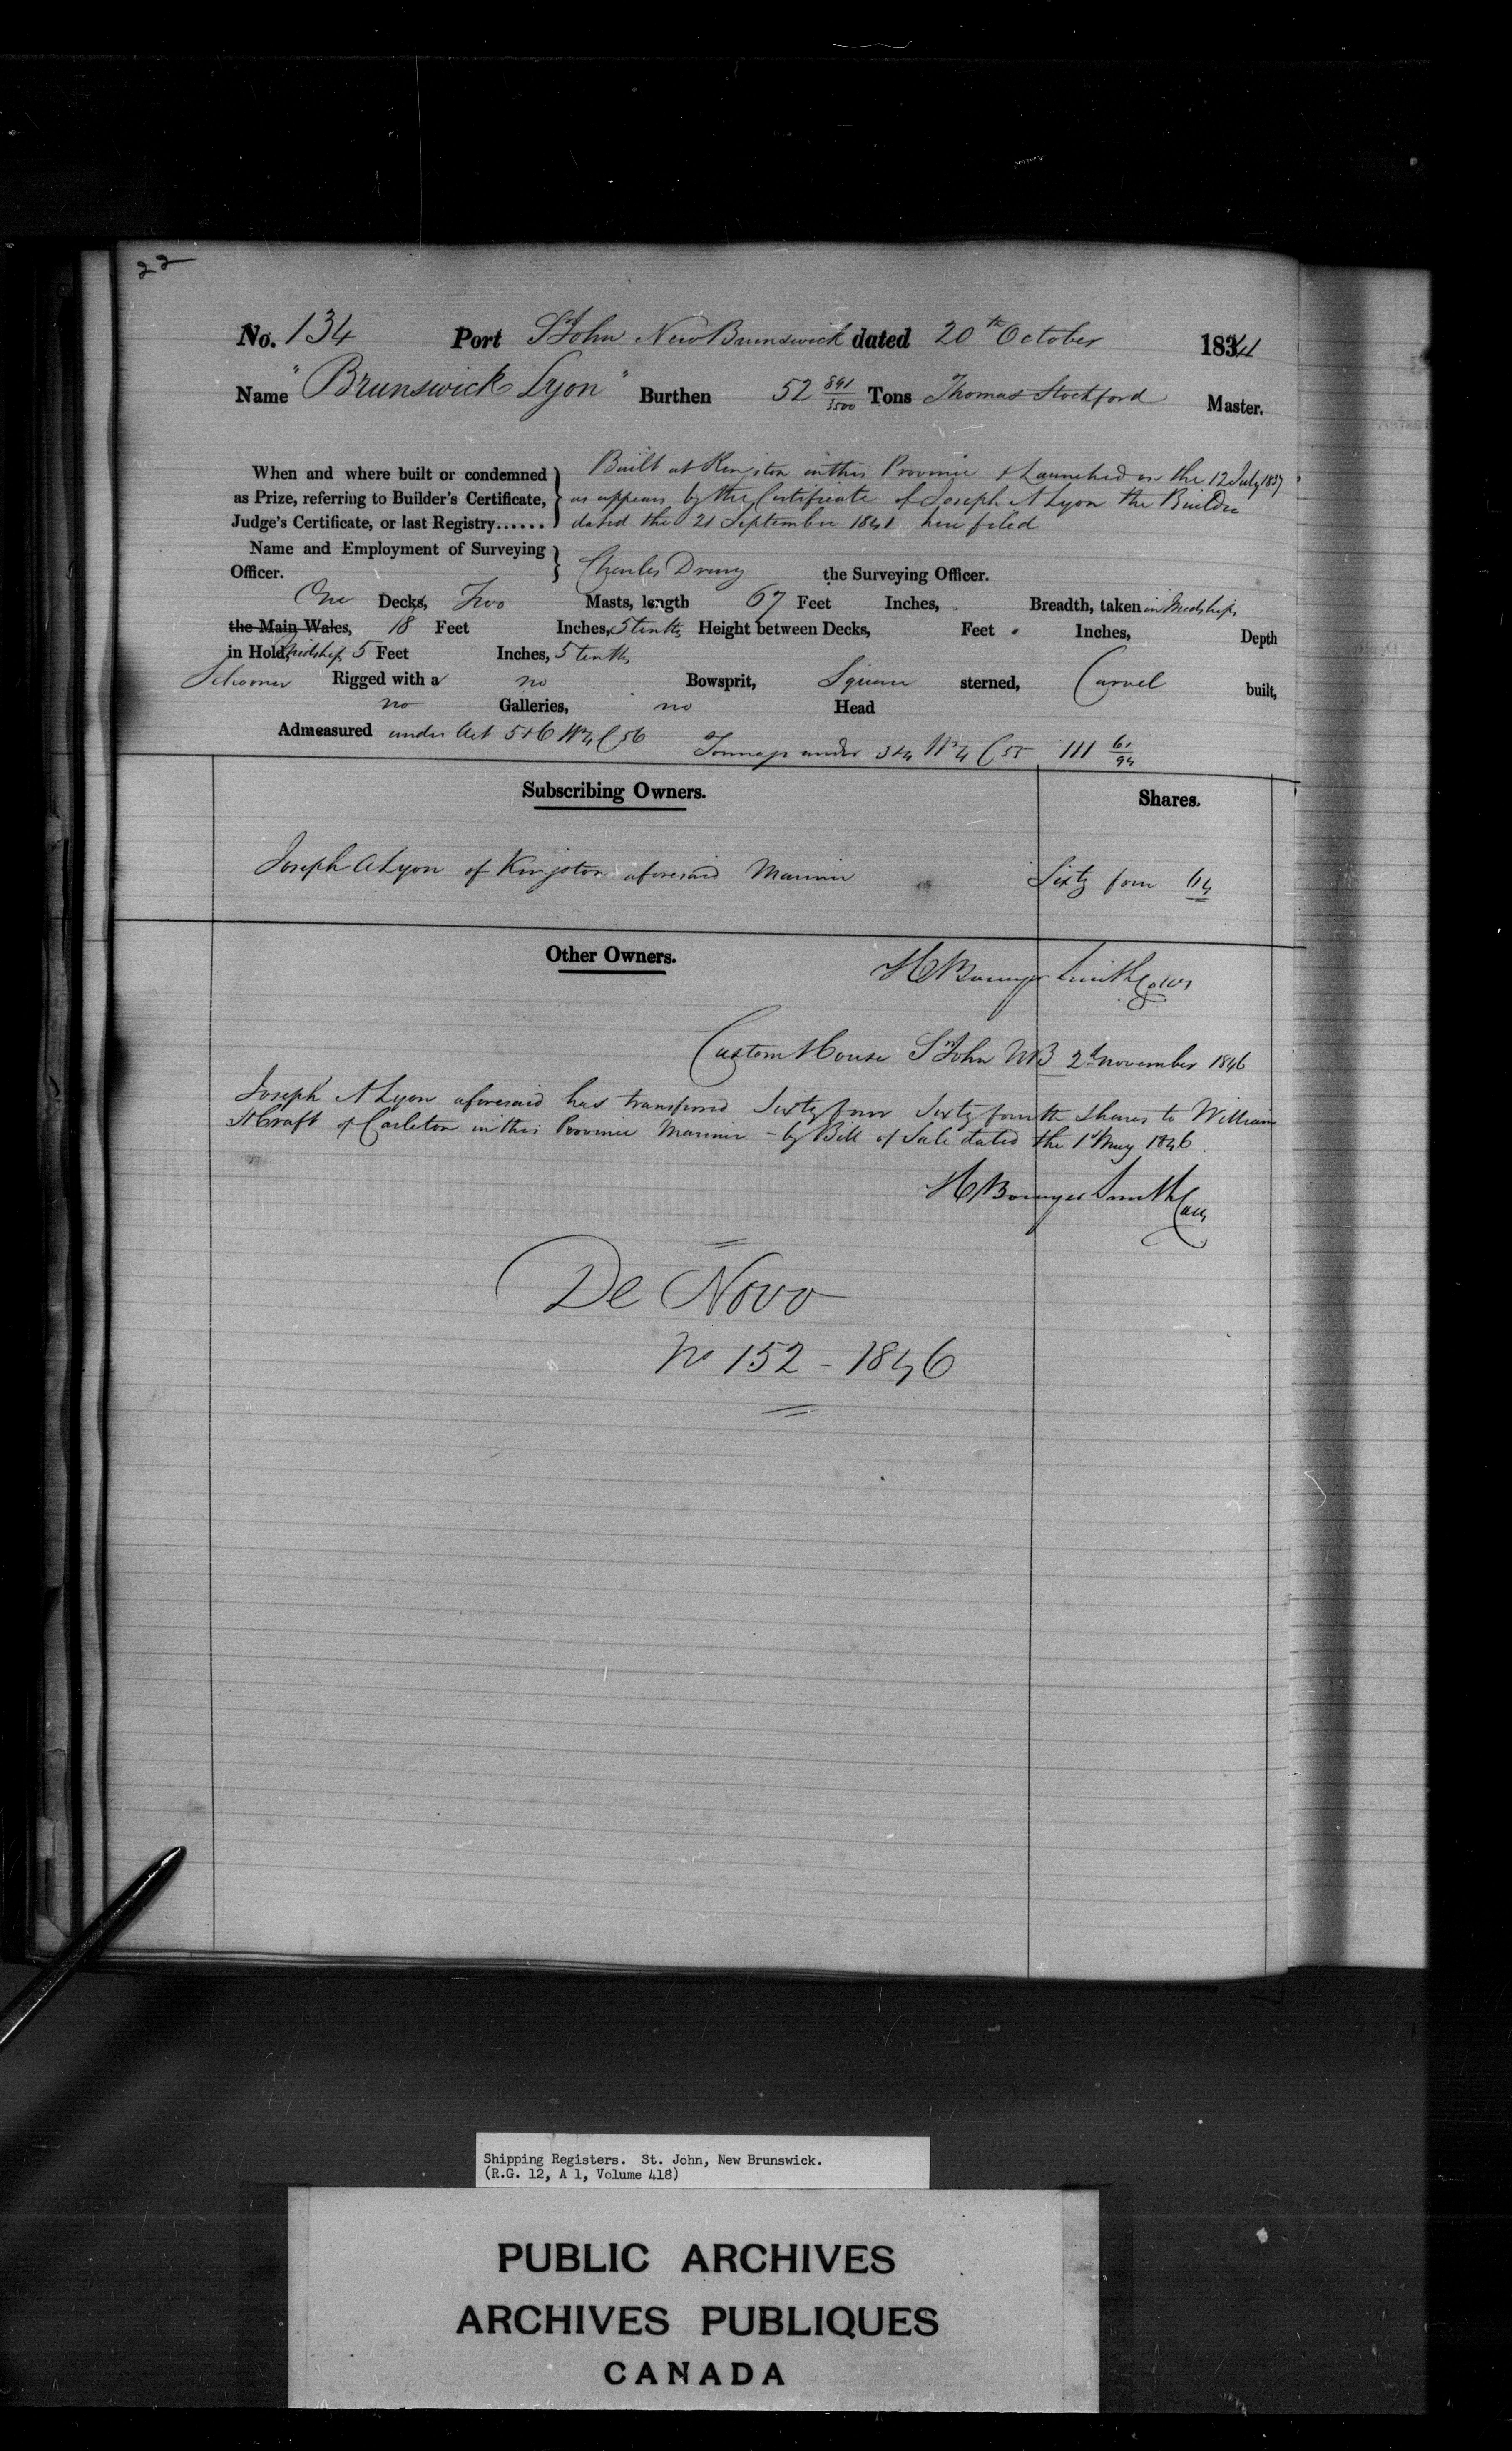 22
No. 134 Port St John New Brunswick dated 20th October 1841
Name "Brunswick Lyon" Burthen 52 891/3500 Tons Thomas Stockford Master.
When and where built or condemned } Built at Kingston in this Province & Launched on the 12 July 1837
as Prize, referring to Builder's Certificate, } as appears by the Certificate of Joseph A Lyon the Builder
Judge's Certificate, or last Registry...... } dated the 21 September 1841 here filed
Name and Employment of Surveying
Officer. } Charles Drury the Surveying Officer.
One Decks, Two Masts, length 67 Feet Inches, Breadth, taken in Midships
the Main Wales, 18 Feet Inches, 5 tenths Height between Decks, Feet Inches, Depth
in Hold, Midships 5 Feet Inches, 5 tenths
Schooner Rigged with a no Bowsprit, Square sterned, Carvel built,
no Galleries, no Head
Admeasured under Act 5 & 6 Wm 4 C 56 Tonnage under 3 & 4 Wm 4 C 55 111 61/94
Subscribing Owners. Shares.
Joseph A Lyon of Kingston aforesaid Mariner Sixty four 64
Other Owners.
H Bowyer Smith Collr
Custom House St John NB 2d November 1846
Joseph A Lyon aforesaid has transferred Sixty four Sixty fourth Shares to William
H Craft of Carleton in this Province Mariner - by Bill of Sale dated the 1st May 1846.
H Bowyer Smith Collr
De Novo
No 152 - 1846
Shipping Registers. St. John, New Brunswick.
(R.G. 12, A 1, Volume 418)
PUBLIC ARCHIVES
ARCHIVES PUBLIQUES
CANADA